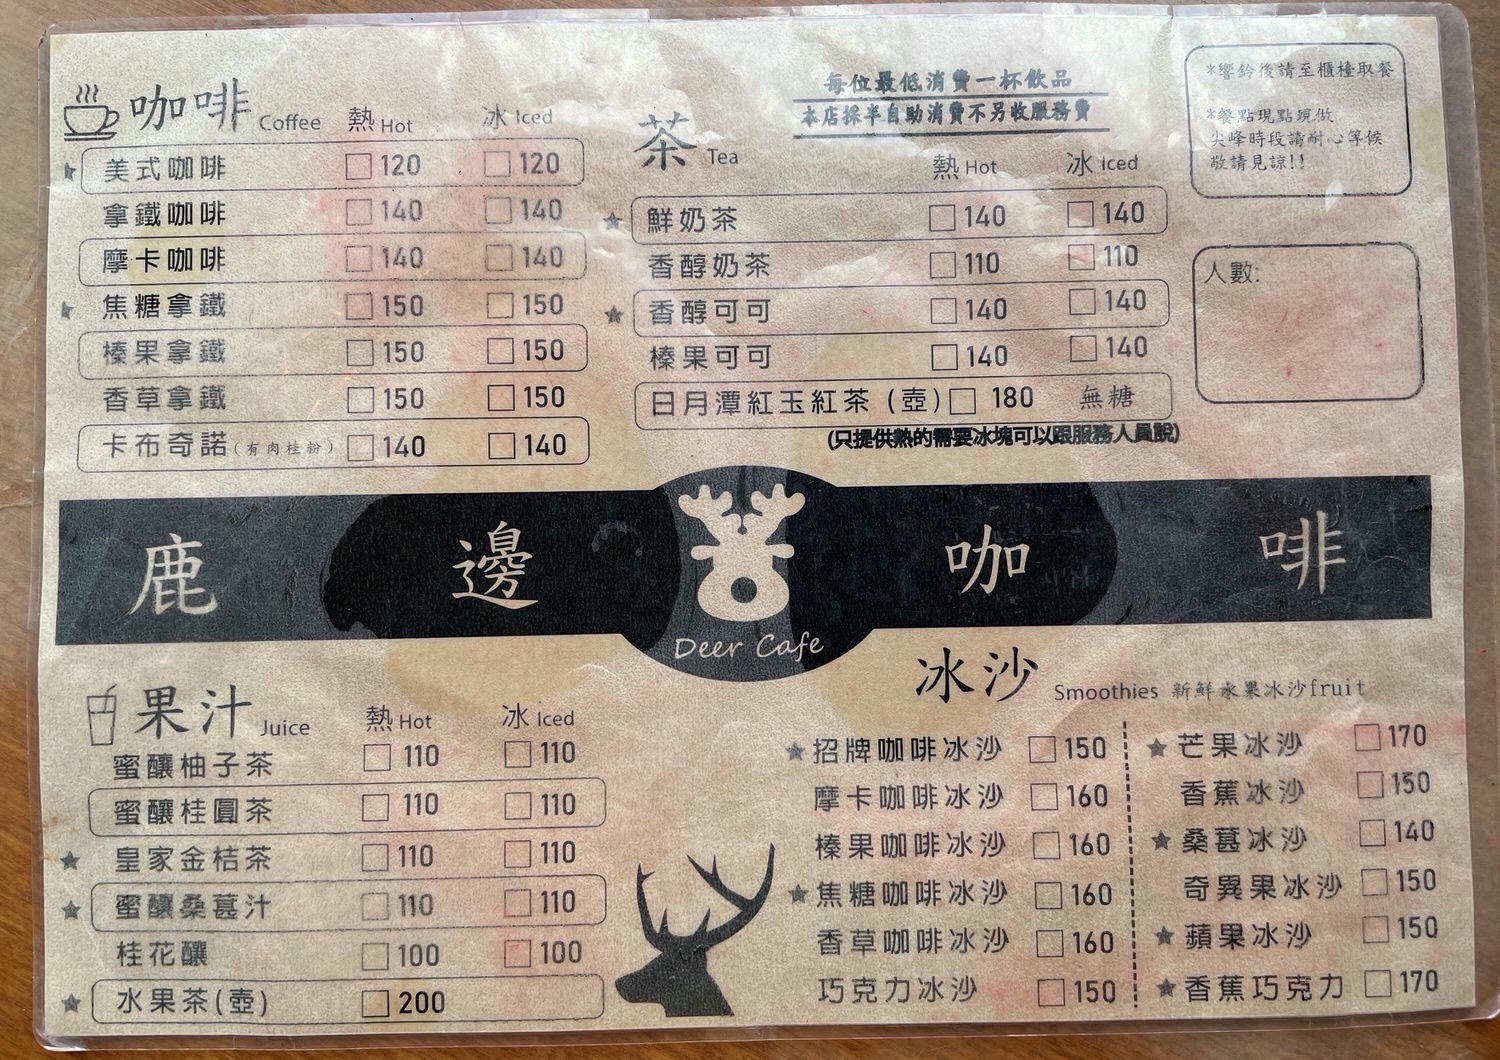 咖啡 Coffee 熱 Hot 冰 Iced
★ 美式咖啡 □120 □120
拿鐵咖啡 □140 □140
摩卡咖啡 □140 □140
★ 焦糖拿鐵 □150 □150
榛果拿鐵 □150 □150
香草拿鐵 □150 □150
卡布奇諾(有肉桂粉) □140 □140
每位最低消費一杯飲品
本店採半自助消費不另收服務費
茶 Tea 熱 Hot 冰 Iced
★ 鮮奶茶 □140 □140
香醇奶茶 □110 □110
★ 香醇可可 □140 □140
榛果可可 □140 □140
日月潭紅玉紅茶(壺) □ 180 無糖
(只提供熱的需要冰塊可以跟服務人員說)
*響鈴後請至櫃檯取餐
*餐點現點現做,
尖峰時段請耐心等候
敬請見諒!!
人數:
鹿邊咖啡
Deer Cafe
果汁 Juice 熱 Hot 冰 Iced
蜜釀柚子茶 □110 □110
蜜釀桂圓茶 □110 □110
★ 皇家金桔茶 □110 □110
★ 蜜釀桑葚汁 □110 □110
桂花釀 □100 □100
★ 水果茶(壺) □200
冰沙 Smoothies 新鮮水果冰沙fruit
★招牌咖啡冰沙 □150
摩卡咖啡冰沙 □160
榛果咖啡冰沙 □160
★焦糖咖啡冰沙 □160
香草咖啡冰沙 □160
巧克力冰沙 □150
★芒果冰沙 □170
香蕉冰沙 □150
★桑葚冰沙 □140
奇異果冰沙 □150
★蘋果冰沙 □150
★香蕉巧克力 □170